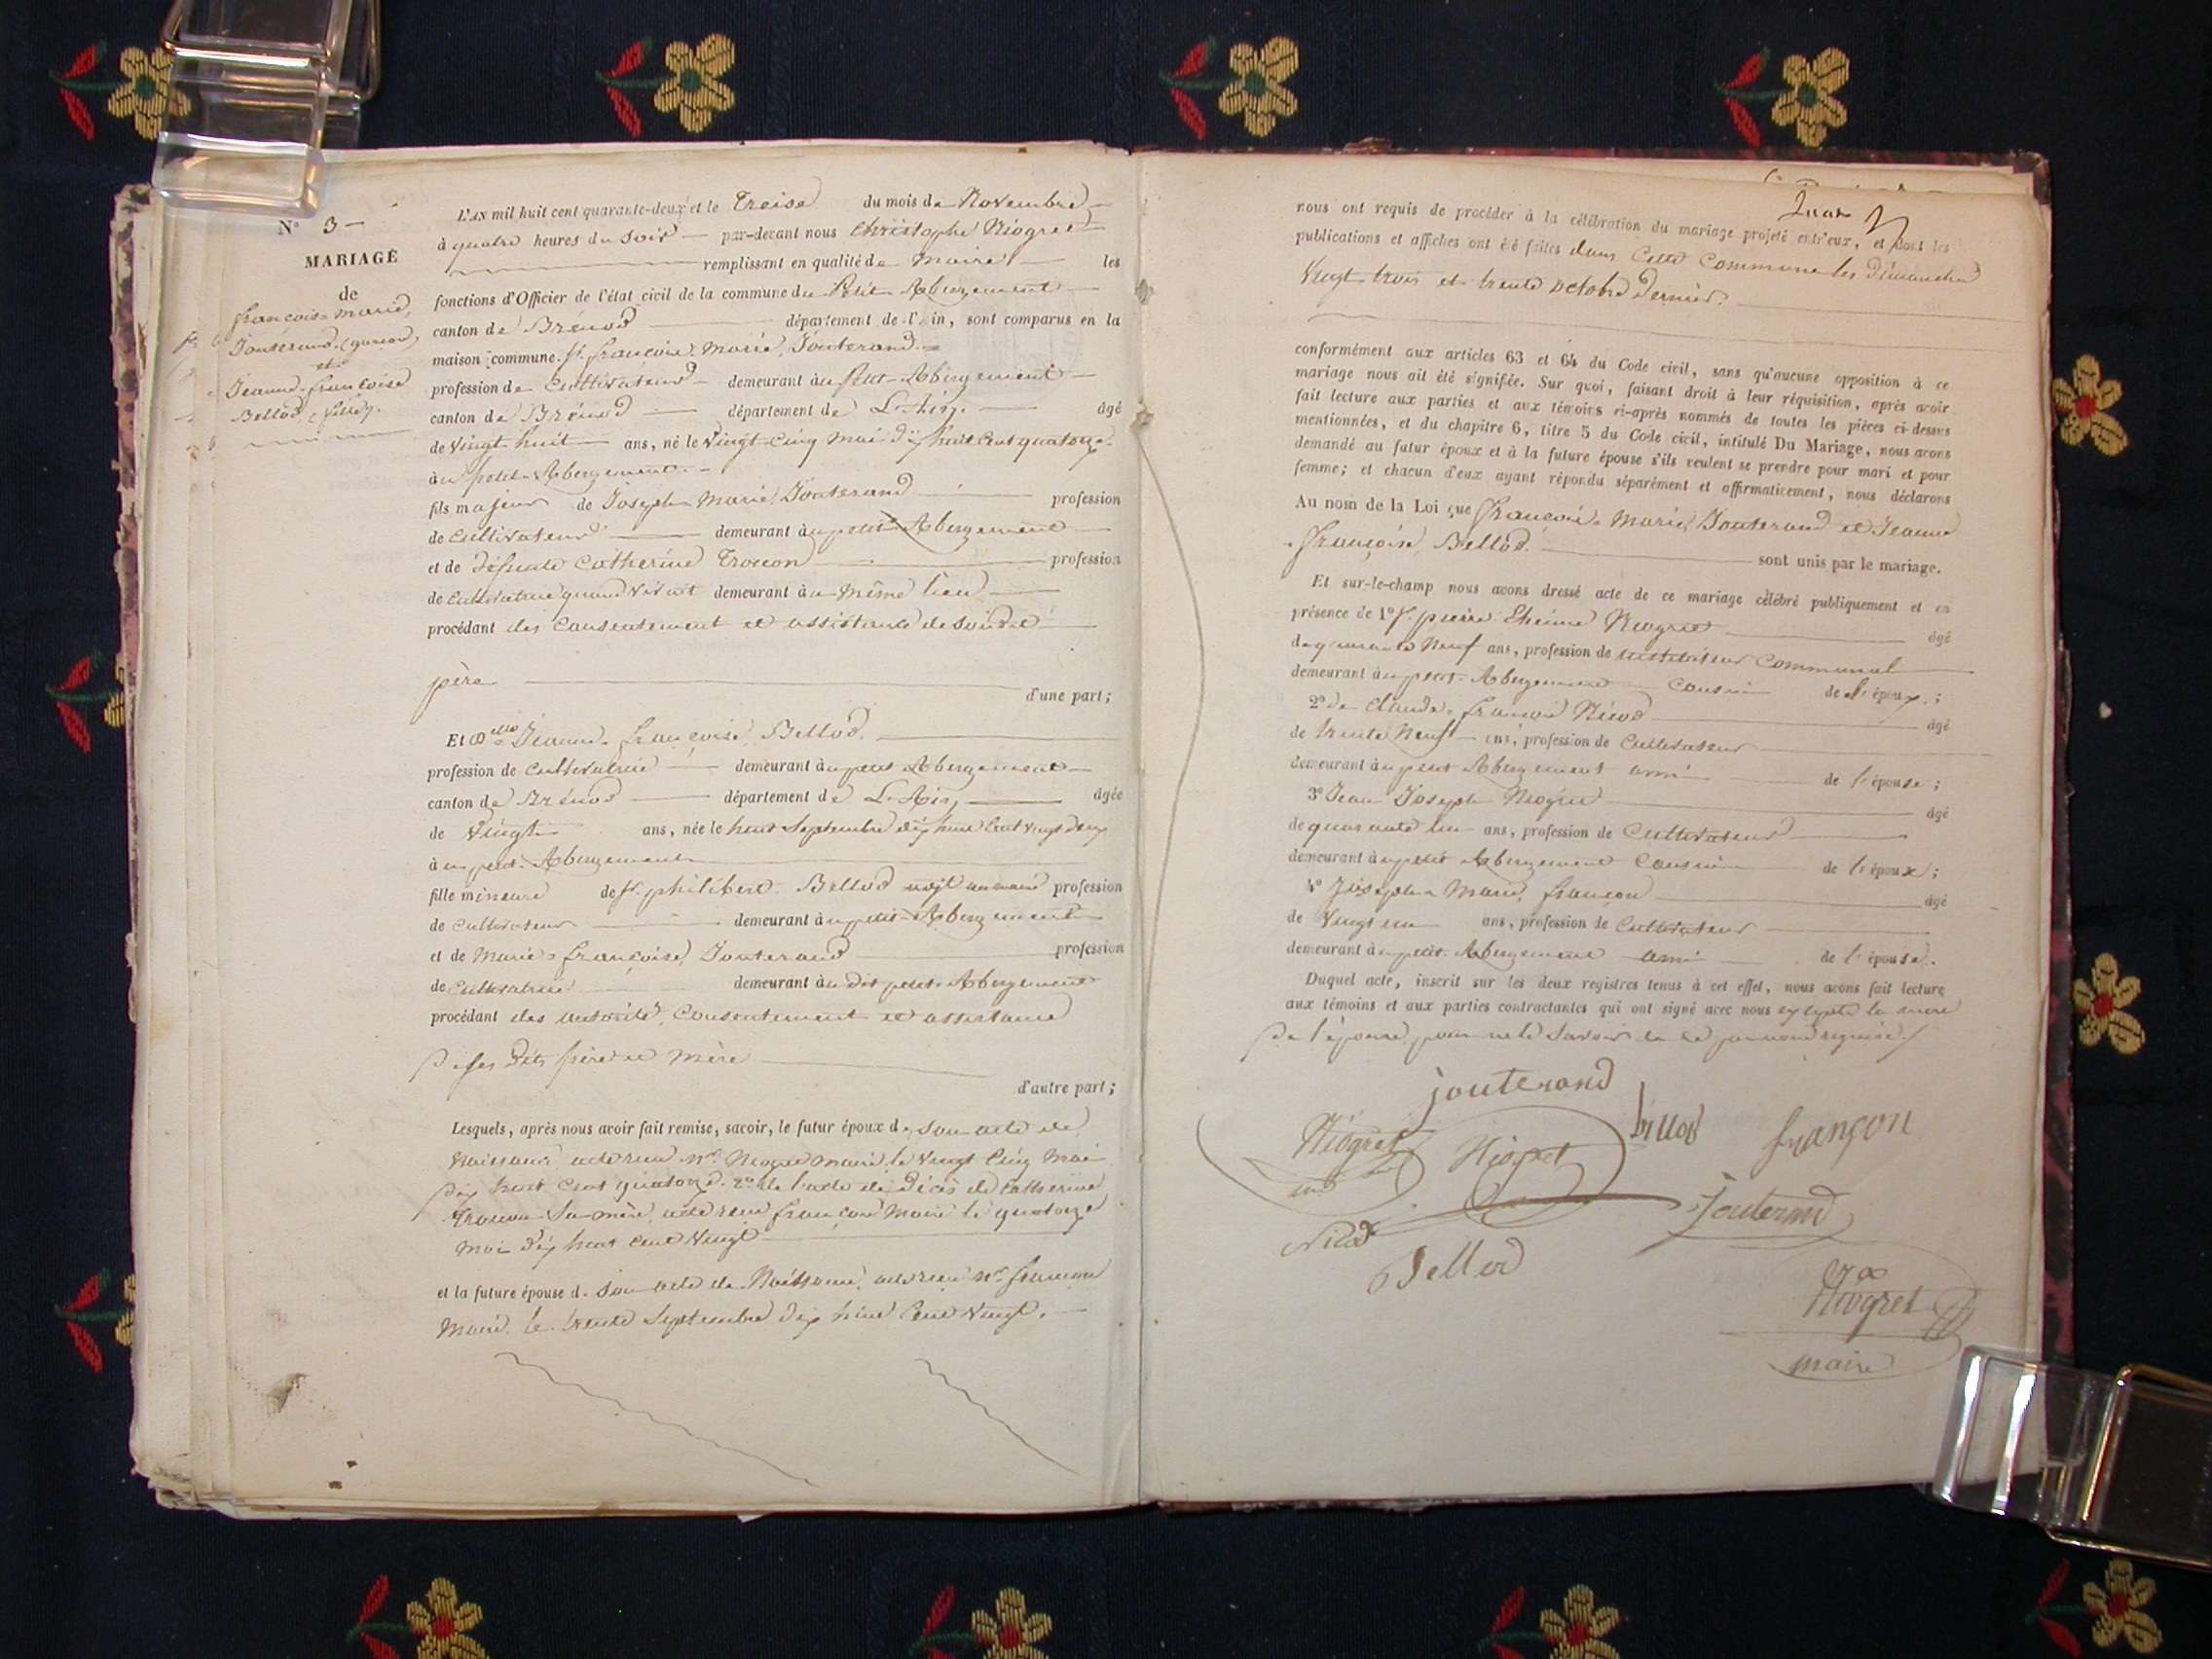 N° 3
MARIAGE
de
françois-marie
Jouterand (garçon)
et
Jeanne-françoise
Bellod, (fille).
L'AN mil huit cent quarante-deux et le Treise du mois de Novembre
à quatre heures du soir par-devant nous Christophe Niogret
remplissant en qualité de maire les
fonctions d'Officier de l'état civil de la commune du Petit-Abergement
canton de Brénod département de l'Ain, sont comparus en la
maison commune. Sr. françois-Marie Jouterand.
profession de cultivateur demeurant au petit-Abergement
canton de Brénod département de L'Ain. âgé
de vingt huit ans, né le vingt-cinq mai dix huit cent quatorze
au petit-Abergement.
fils majeur de Joseph-Marie Jouterand profession
de cultivateur demeurant au petit-Abergement
et de défunte Catherine profession
de cultivatrice quand vivait demeurant au même lieu
procédant des consentement et assistance de son dit
père d'une part;
Et Delle Jeanne-françoise Bellod.
profession de cultivatrice demeurant au petit Abergement
canton de Brénod département de L'Ain, âgée
de vingt ans, née le huit Septembre dix huit cent vingt deux
au petit-Abergement
fille mineure de Sr. philibert Bellod profession
de cultivateur demeurant au petit-Abergement
et de Marie-françoise Jouterand profession
de cultivatrice demeurant au dit petit-Abergement
procédant des autorité, consentement et assistance
de ses dits père et mère
d'autre part;
Lesquels, après nous avoir fait remise, savoir, le futur époux de son acte de
Naissance, acte reçu Mr. Niogret maire le vingt cinq Mai
dix huit cent quatorze. 2° de l'acte de décès de Catherine
sa mère, acte reçu françon Maire le quatorze
mai dix huit cent vingt
et la future épouse de son acte de Naissance, acte reçu Mr. françon
Maire le trente Septembre dix huit cent vingt.
nous ont requis de procéder à la célébration du mariage projeté entr'eux, et dont les
publications et affiches ont été faites dans cette commune les Dimanches
vingt-trois et trente octobre dernier.
conformément aux articles 63 et 64 du Code civil, sans qu'aucune opposition à ce
mariage nous ait été signifiée. Sur quoi, faisant droit à leur réquisition, après avoir
fait lecture aux parties et aux témoins ci-après nommés de toutes les pièces ci-dessus
mentionnées, et du chapitre 6, titre 5 du Code civil, intitulé Du Mariage, nous avons
demandé au futur époux et à la future épouse s'ils veulent se prendre pour mari et pour
femme; et chacun d'eux ayant répondu séparément et affirmativement, nous déclarons
Au nom de la Loi que françois-Marie Jouterand et Jeanne
-françoise Bellod. sont unis par le mariage.
Et sur-le-champ nous avons dressé acte de ce mariage célébré publiquement et en
présence de 1° Sr. pierre Etienne Niogret âgé
de quarante neuf ans, profession de instituteur communal
demeurant au petit-Abergement cousin de l'époux;
2° de Claude-françois Nicod âgé
de trente neuf ans, profession de cultivateur
demeurant au petit Abergement ami de l'épouse;
3° Jean Joseph Niogret âgé
de quarante un ans, profession de cultivateur
demeurant au petit Abergement cousin de l'époux;
4° Joseph-Marie françon âgé
de vingt un ans, profession de cultivateur
demeurant au petit-Abergement ami de l'épouse.
Duquel acte, inscrit sur les deux registres tenus à cet effet, nous avons fait lecture
aux témoins et aux parties contractantes qui ont signé avec nous excepté la mère
de l'épouse pour ne le savoir de ce par nous requise.
jouterand
Niogret
Niogret
billod
françon
Nicod
Jouterand
Bellod
Niogret
maire